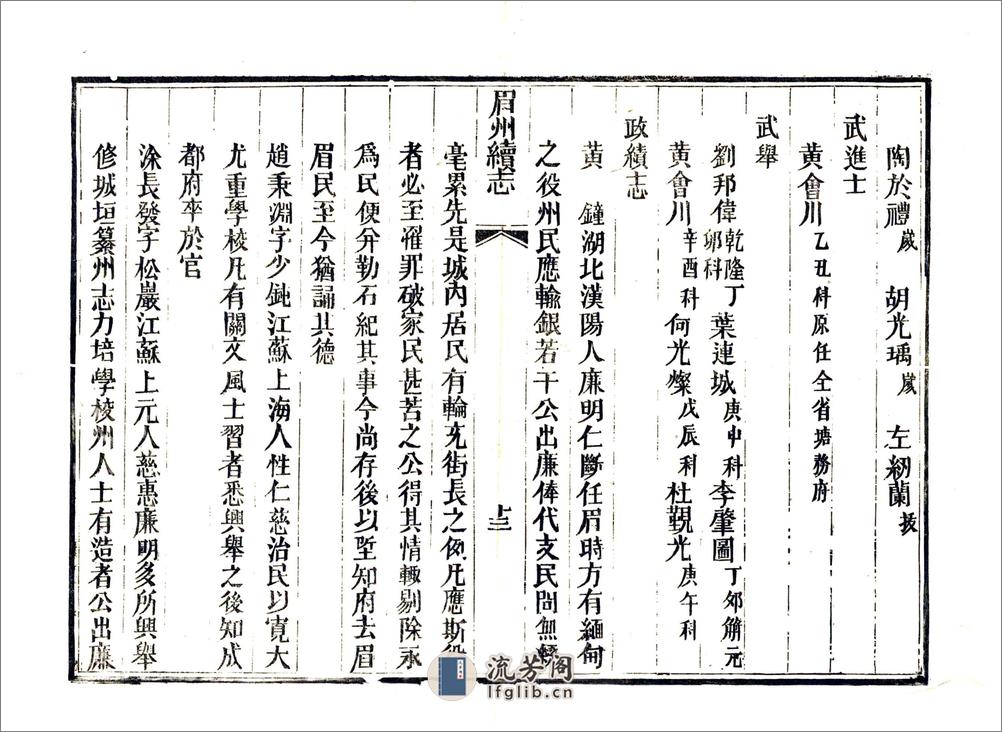 陶於禮嵗 胡光瑀嵗 左紉蘭拔
武進士
黃會川乙丑科原任仝省塘務府
武舉
劉邦偉乾隆丁卯科 葉連城庚申科李肇圖丁卯解元
黃會川辛酉科何光燦戊辰科杜觀光庚午科
政績志
黃 鐘湖北漢陽人廉明仁斷任眉時方有緬甸
之役州民應輸銀若干公出廉俸代支民間無
眉州續志
十三
毫累先是城內居民有輪充街長之例凡應斯役
者必至罹罪破家民甚苦之公得其情輒剔除永
爲民便分勒石紀其事今尚存後以陞知府去眉
眉民至今猶誦其德
趙秉淵字少鈍江蘇上海人性仁慈治民以寬大
尤重學校凡有關文風士習者悉興舉之後知成
都府卒於官
涂長發字松巖江蘇上元人慈惠廉明多所興舉
修城垣纂州志力培學校州人士有造者公出廉
流芳阁
lfglib.cn